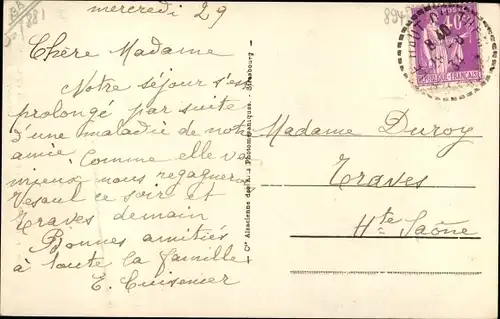 mercredi 29
Chère Madame
Notre séjour s'est
prolongé par suite
d'une maladie de notre
amie. Comme elle va
mieux nous regagnerons
Vesoul ce soir et
Traves demain
Bonnes amitiés
à toute la famille
E. Cuisenier
Cie Alsacienne des Arts Photomécaniques - Strasbourg
Madame Duroy
Traves
Hte Saône
POSTES
40c